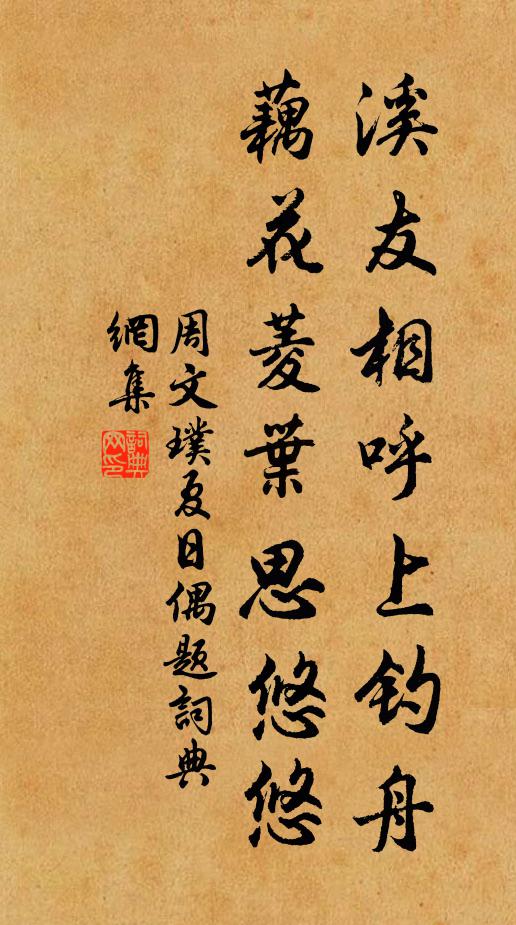 溪友相呼上钓舟
藕花菱葉思悠悠
周文璞夏日偶题詞典
網集
詞典
网印